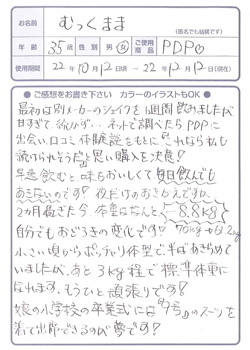 お名前 むっくまま
(匿名でも結構です)
年齢 35歳 性別 男・女 ご使用商品 PDP♡
使用期間 22年10月12日頃 ～ 22年12月12日(現在)
●ご感想をお書き下さい カラーのイラストもOK●
最初は別メーカーのシェイクを1週間飲みましたが
甘すぎて
ネットで調べたらPDPに
出会い、口コミ体験談とともにこれなら私も
続けられそうだと思い購入を決意!
早速飲むと味もおいしくて毎日飲んでも
あきないのです! 夜だけのおきかえですが、
2カ月過ぎた今、体重はなんと -8.8kg
自分でもおどろきの変化です!
小さい頃からポッチャリ体型で、半ばあきらめて
いましたが、あと3kg程で標準体重に
なれます。もうひと頑張りです!
娘の小学校の卒業式には"9号"のスーツを
着て出席できるのが夢です!